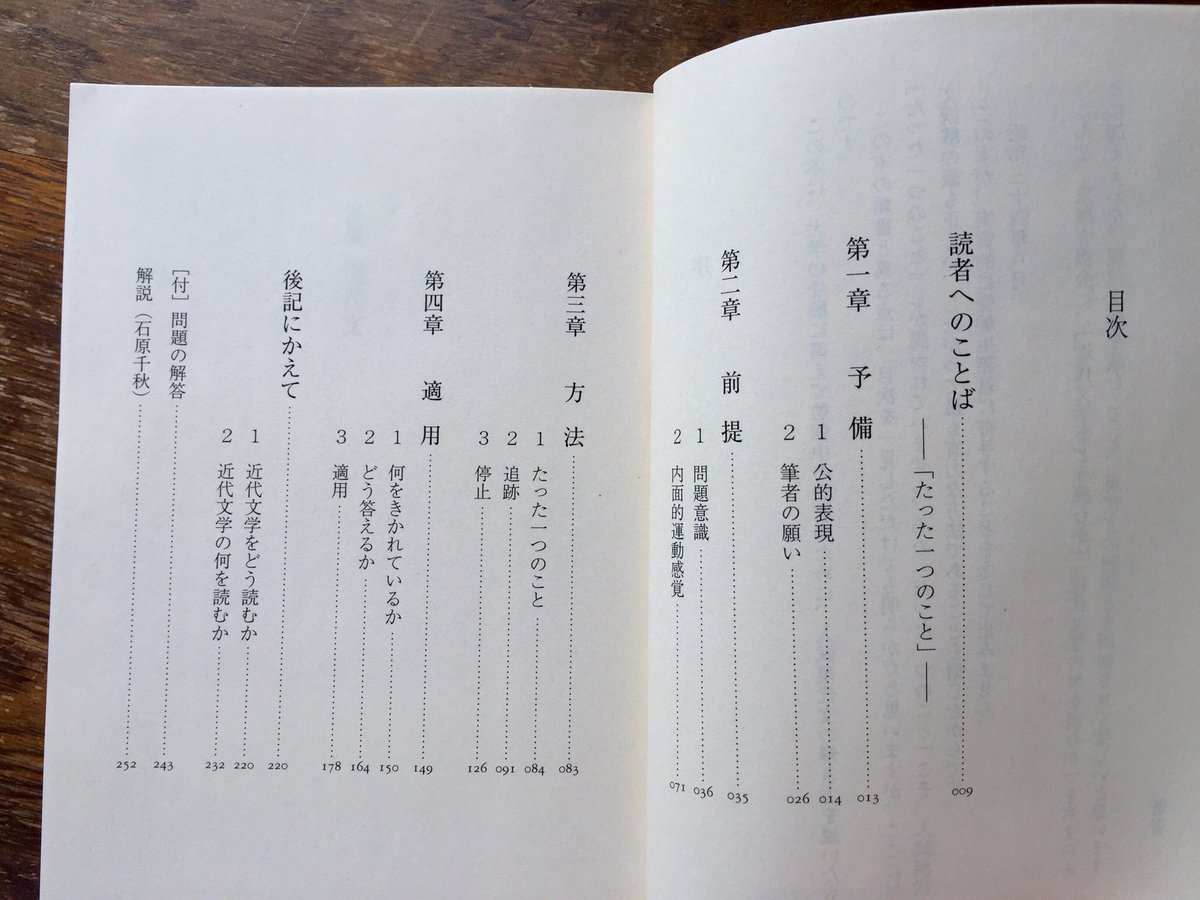 目次
読者へのことば ——「たった一つのこと」—— 009
第一章 予備 013
1 公的表現 014
2 筆者の願い 026
第二章 前提 035
1 問題意識 036
2 内面的運動感覚 071
第三章 方法 083
1 たった一つのこと 084
2 追跡 091
3 停止 126
第四章 適用 149
1 何をきかれているか 150
2 どう答えるか 164
3 適用 178
後記にかえて 220
1 近代文学をどう読むか 220
2 近代文学の何を読むか 232
［付］問題の解答 243
解説（石原千秋） 252